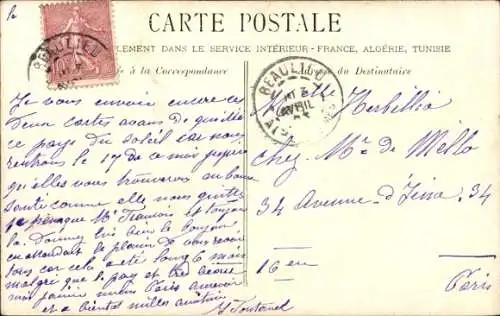 CARTE POSTALE
LEMENT DANS LE SERVICE INTÉRIEUR - FRANCE, ALGÉRIE, TUNISIE
à la Correspondance
du Destinataire
BEAULIEU
BEAULIEU
AVRIL
Je vous envoie encore ces
deux cartes avant de quitter
ce pays du soleil car nous
rentrons le 17 de ce mois j'espère
qu'elles vous trouveront en bonne
santé comme elle nous quitte
Mr François est toujours
la. Donnez lui bien le bonjour
en attendant le plaisir de vous revoir
tous car cela été long 6 mois
malgré que le pay et
Paris au revoir
et a bientot milles amitiés
Melle Herbillia
chez Mr de Mello
34 Avenue d'Iéna 34
16 em
Paris